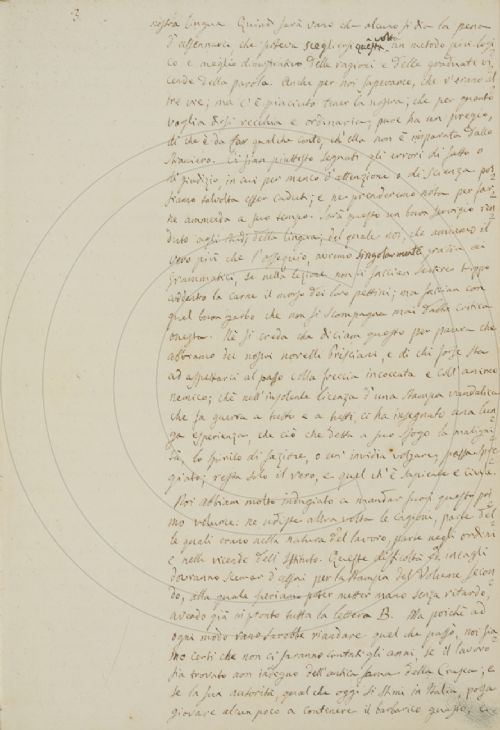 3.
nostra lingua. Quindi sarà vano che alcuno si dia la pena
d'affannarsi che poteva scegliersi questa volta un metodo più logi-
co e meglio dimostrativo delle ragioni e delle graduate vi-
cende della parola. Anche per noi sapevamo, che v'erano al-
tre vie; ma c'è piaciuto tener la nostra; che per quanto
voglia dirsi vecchia e ordinaria; pure ha un pregio,
di che è da far qualche conto, ch'ella non è imparata dallo
straniero. Ci sian piuttosto segnati gli errori di fatto o
di giudizio, in cui per manco d'attenzione o di scienza pos-
siamo talvolta esser caduti; e ne prenderemo nota per far-
ne ammenda a suo tempo. Sarà questo un buon servigio ren-
duto agli studj della lingua, del quale noi, che amiamo il
vero più che l'ossequio, avremo singolarmente grazia ai
grammatici, se nella lezione non ci faccian sentire troppo
addentro la carne il morso dei loro pettini; ma faccian con
quel buon garbo che non si scompagna mai dalla critica
onesta. Nè si creda che diciam questo per paura che
abbiamo dei nostri novelli Prisciani, e di chi forse sta
ad aspettarci al passo colla freccia incoccata e coll'animo
nemico; chè nell'insolente licenza d'una stampa vandalica
che fa guerra a tutto e a tutti, ci ha insegnato una lun-
ga esperienza, che ciò che detta a suo sfogo la maligni-
tà, lo spirito di fazione, o un'invidia volgare, passa spre-
giato; resta solo il vero, e quel ch'è sapiente e civile.
Noi abbiam molto indugiato a mandar fuori questo pri-
mo volume. ne udiste altra volta le cagioni, parte del-
le quali erano nella natura del lavoro, parte negli ordini
e nelle vicende dell'Istituto. Queste difficoltà ed incagli
dovranno scemar d'assai per la stampa del Volume secon-
do, alla quale speriamo poter metter mano senza ritardo,
avendo già in pronto tutta la lettera B. Ma poichè ad
ogni modo vano sarebbe riandare quel che passò, noi sia-
mo certi che non ci saranno contati gli anni, se il lavoro
sia trovato non indegno dell'antica fama della Crusca; e
se la sua autorità, qual che oggi si stimi in Italia, possa
giovare alcun poco a contenere il barbarico guasto, e